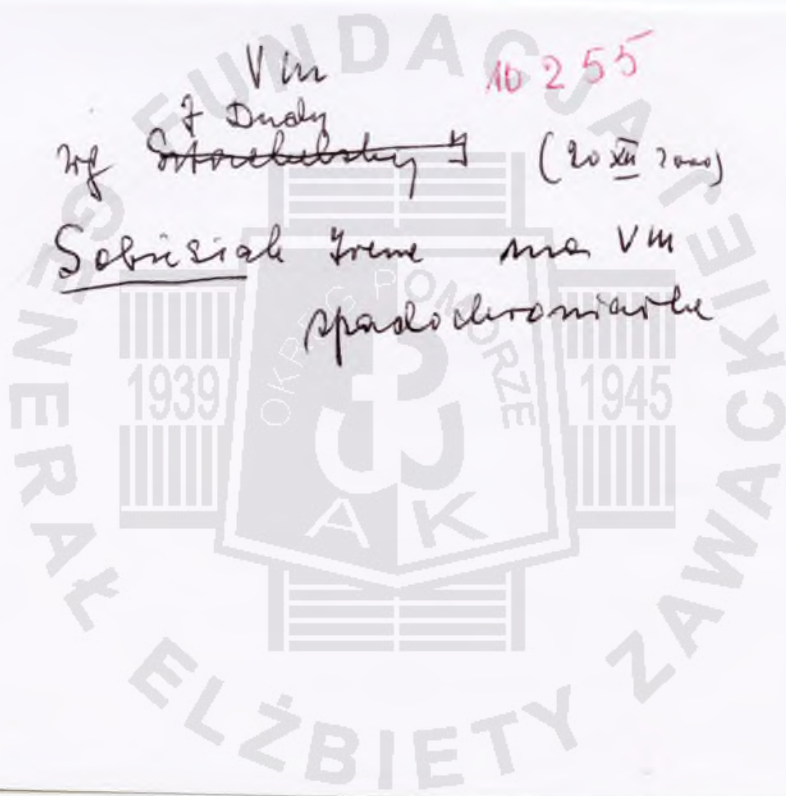 VM 10255
J Dudy
wg Strachulskiej J (20 XII 2000)
Sobiesiak Irena ma VM
spadochroniarka
FUNDACJA GENERAŁ ELŻBIETY ZAWACKIEJ
OKRĘG POMORZE
1939 1945
AK